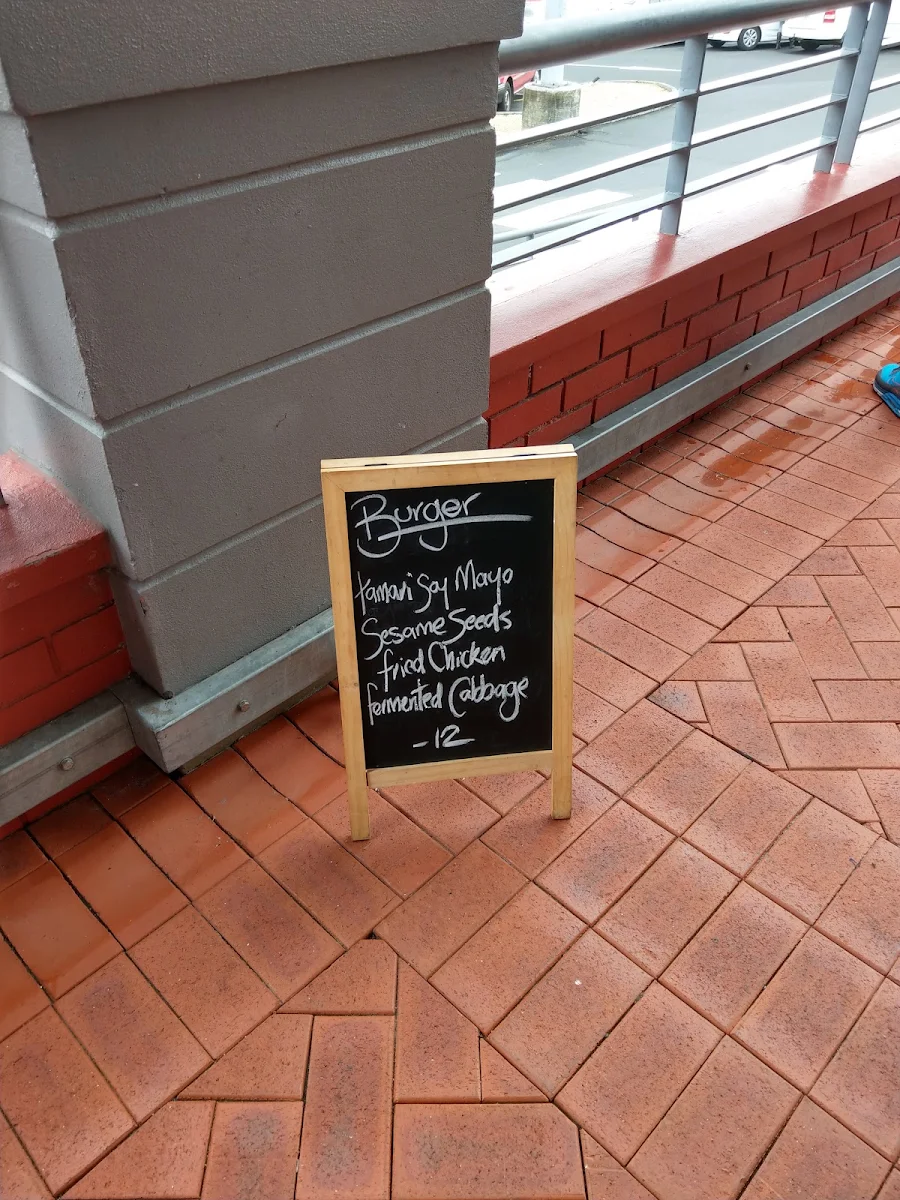 Burger
tamari Soy Mayo
Sesame Seeds
fried Chicken
fermented Cabbage
-12